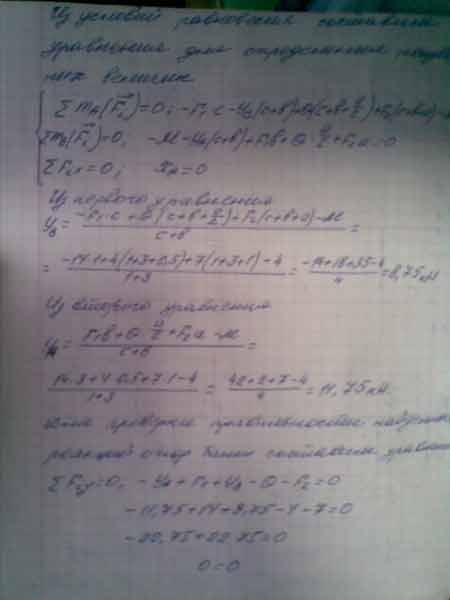 Из условий равновесия составим
уравнения для определения
ных величин
∑mA(F⃗i)=0; -F1·c-YB(c+b)+Q(c+b+a/2)+F2(c+b+a)-M
∑mB(F⃗i)=0, -M-YA(c+b)+F1b+Q a/2+F2a=0
∑Fix=0; XA=0
Из первого уравнения
YB= (-F1·c+Q(c+b+a/2)+F2(c+b+a)-M)/(c+b) =
= (-14·1+4(1+3+0.5)+7(1+3+1)-4)/(1+3) = (-14+18+35-4)/4 =8,75кН
Из второго уравнения
YA= (F1b+Q a/2+F2a-M)/(c+b) =
(14·3+4·0.5+7·1-4)/(1+3) = (42+2+7-4)/4 = 11,75кН
Для проверки правильности
реакций опор балки составим
∑Fiy=0, -YA+F1+YB-Q-F2=0
-11,75+14+8,75-4-7=0
-22,75+22,75=0
0=0